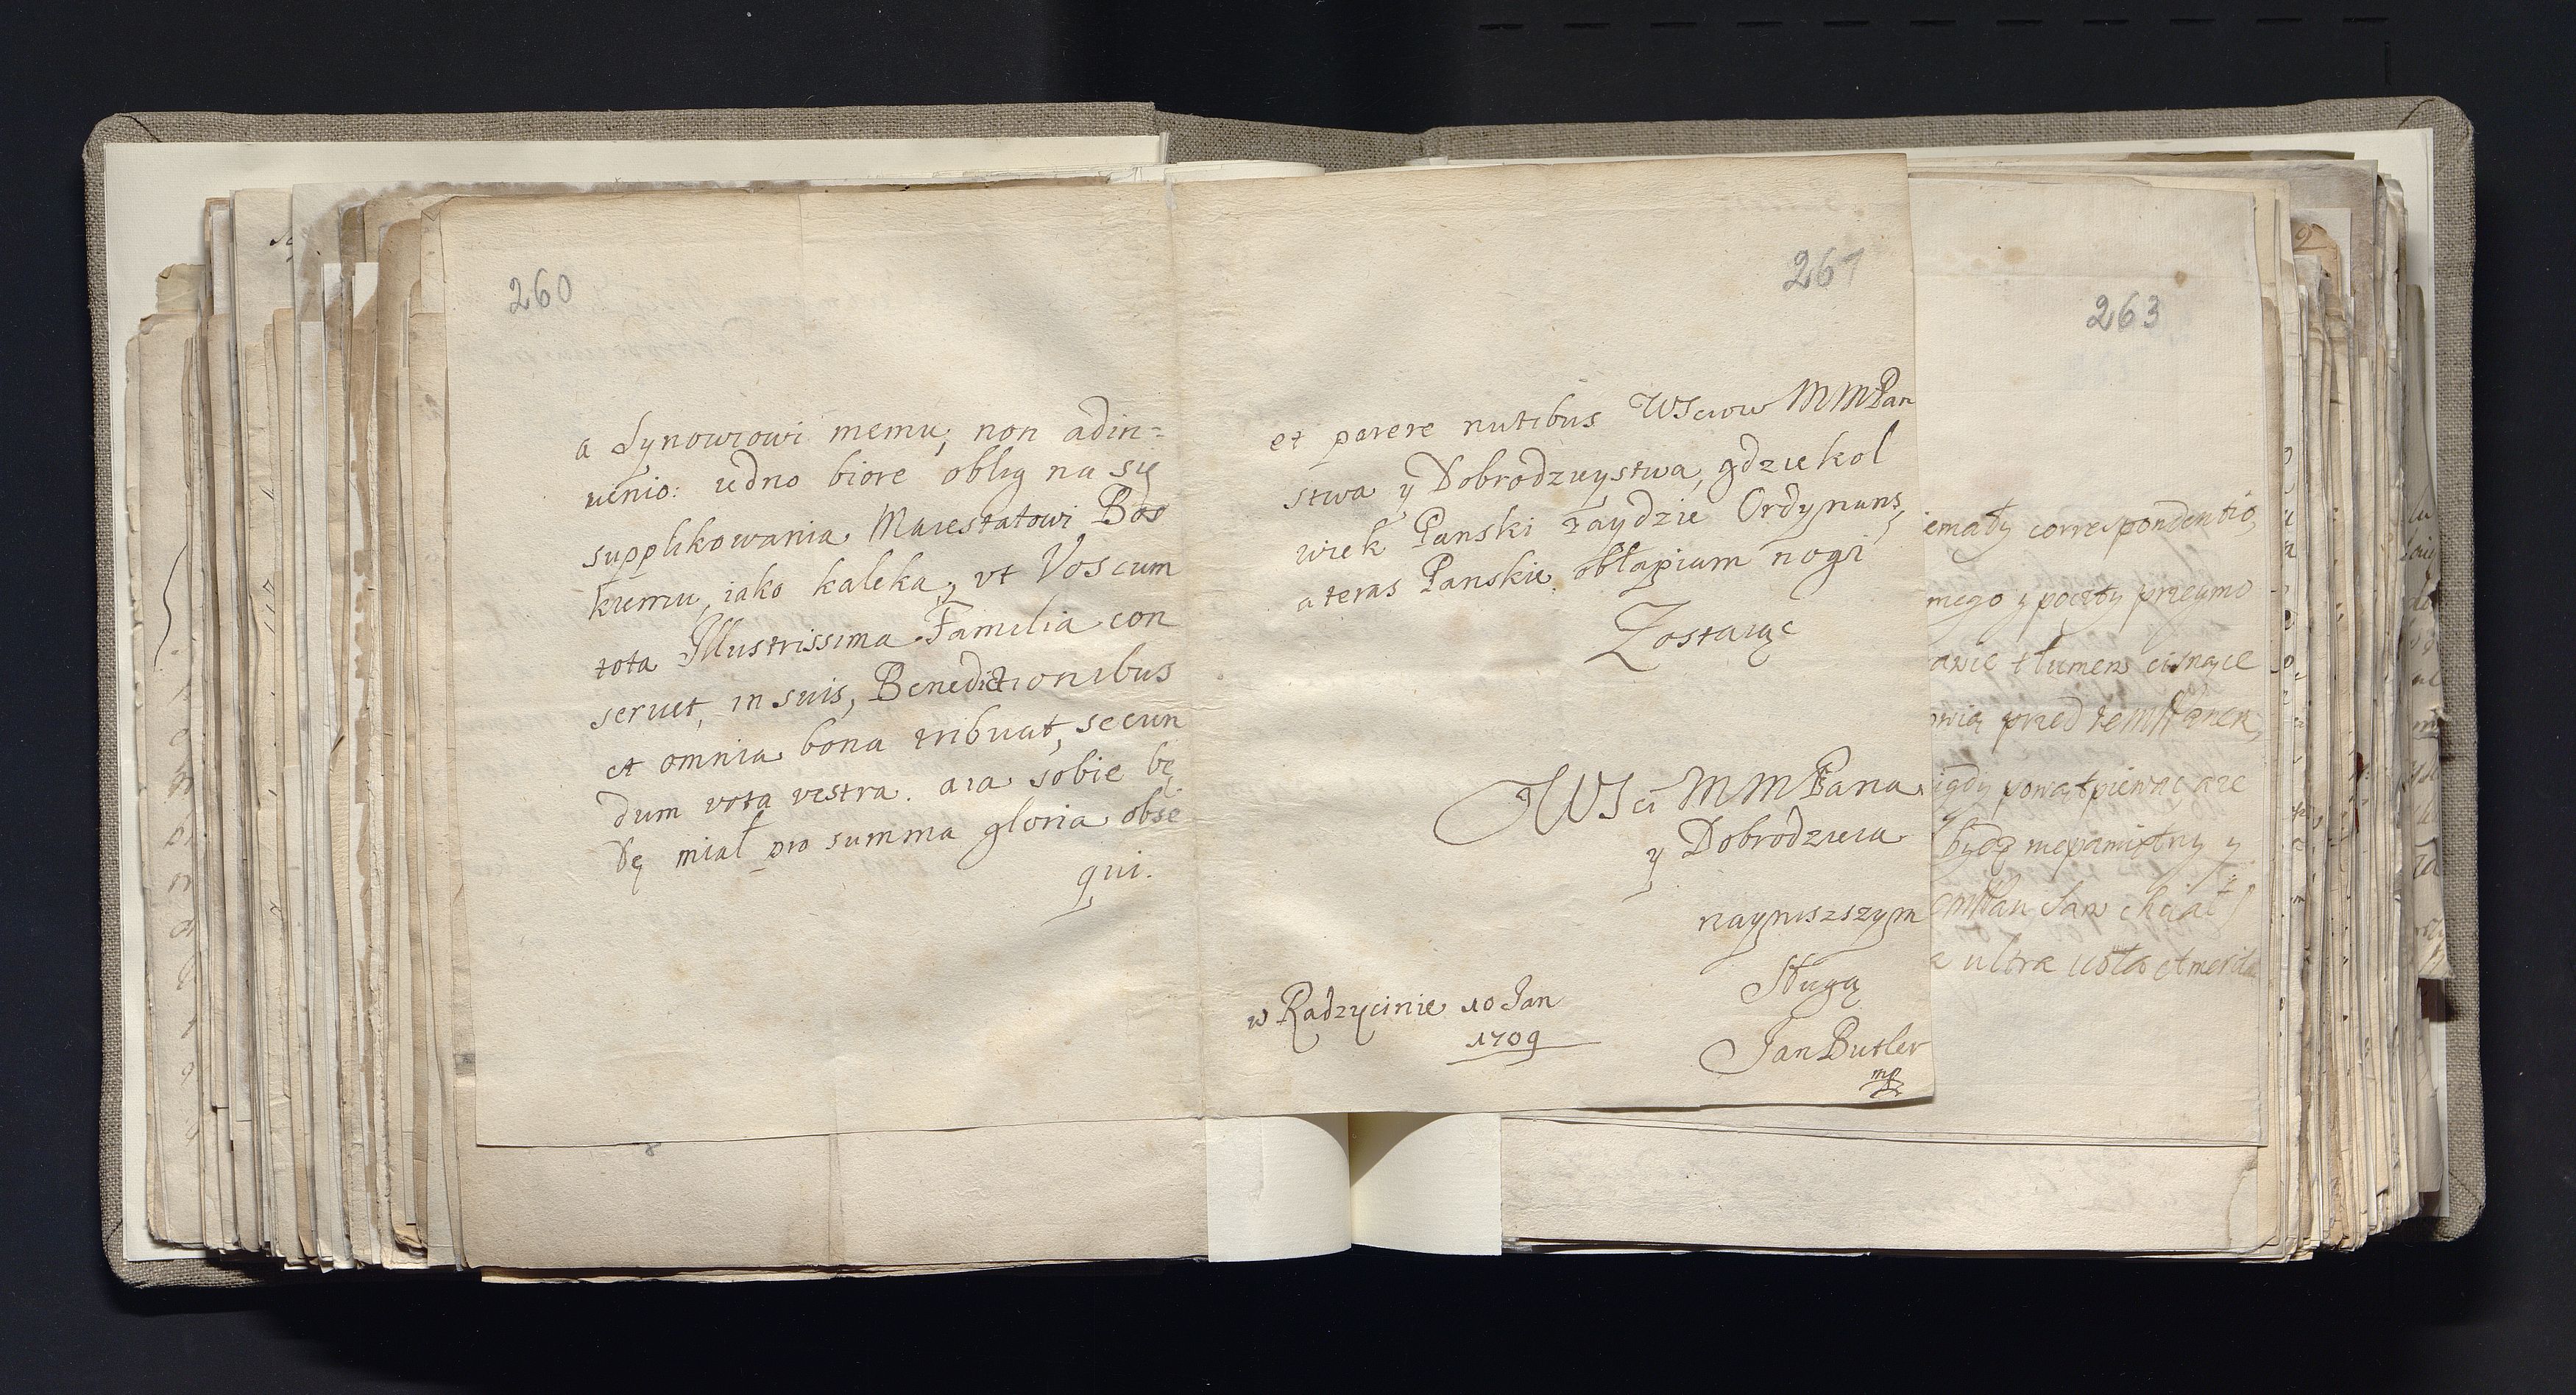 260
a Synowiowi memu, non adin=
uenio: iedno biore oblig na się
supplikowania Maiestatowi Bos
kiemu, iako kaleka, vt Vos cum
tota Illustrissima Familia con
seruet, in suis, Benedictionibus
et omnia bona tribuat, secun
dum vota vestra. aia sobie bę
dę miał pro summa gloria obse
qui.
261
et parere nutibus WSciow MMPan
stwa y Dobrodzieystwa, gdziekol
wiek Panski zaydzie Ordynans,
a teras Panskie obłapiam nogi
Zostaiąc
WSci MMPana
y Dobrodzieia
nayniszszym
Sługą
Jan Butler
mp
w Radzycinie 10 Jan
1709
263
iemały correspondentio,
mego y poczty przeymo
awie tłumem cisnące
owią przed
igdy powątpiewać aże
będę niepamiętny y
Pan sam chciał
a ultra uota et merita